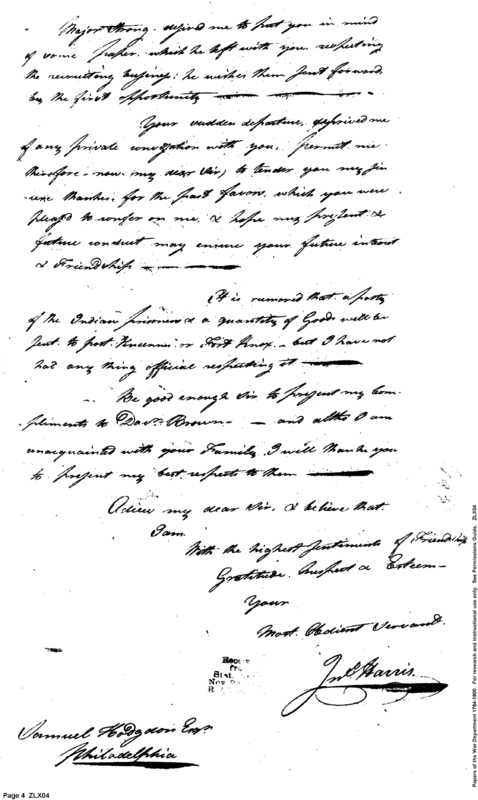 Major Strong desired me to put you in mind
of some paper which he left with you respecting
the recruiting business; he wishes them sent forward
by the first opportunity
Your sudden departure, deprived me
of any private conversation with you, permit me
therefore now (my dear Sir) to tender you my sin-
cere thanks, for the past favors, which you were
pleas'd to confer on me, & hope my present &
future conduct may ensure your future interest
& Friendship
It is rumored that a party
of the Indian prisoners & a quantity of Goods will be
sent to post Vincennes or Fort Knox - but I have not
had any thing official respecting it
Be good enough Sir to present my Com-
pliments to Brown - and altho I am
unacquainted with your Family, I will thank you
to present my best respects to them
Adieu my dear Sir, & believe that
I am
With the highest Sentiments of Friendship
Gratitude, Respect & Esteem -
Your
Most Obedient Servant
Jno. Harris
Samuel Hodgdon Esqr.
Philadelphia
Page 4 ZLX04
Papers of the War Department 1784-1800. For research and instructional use only. See Permissions Guide. ZLX04